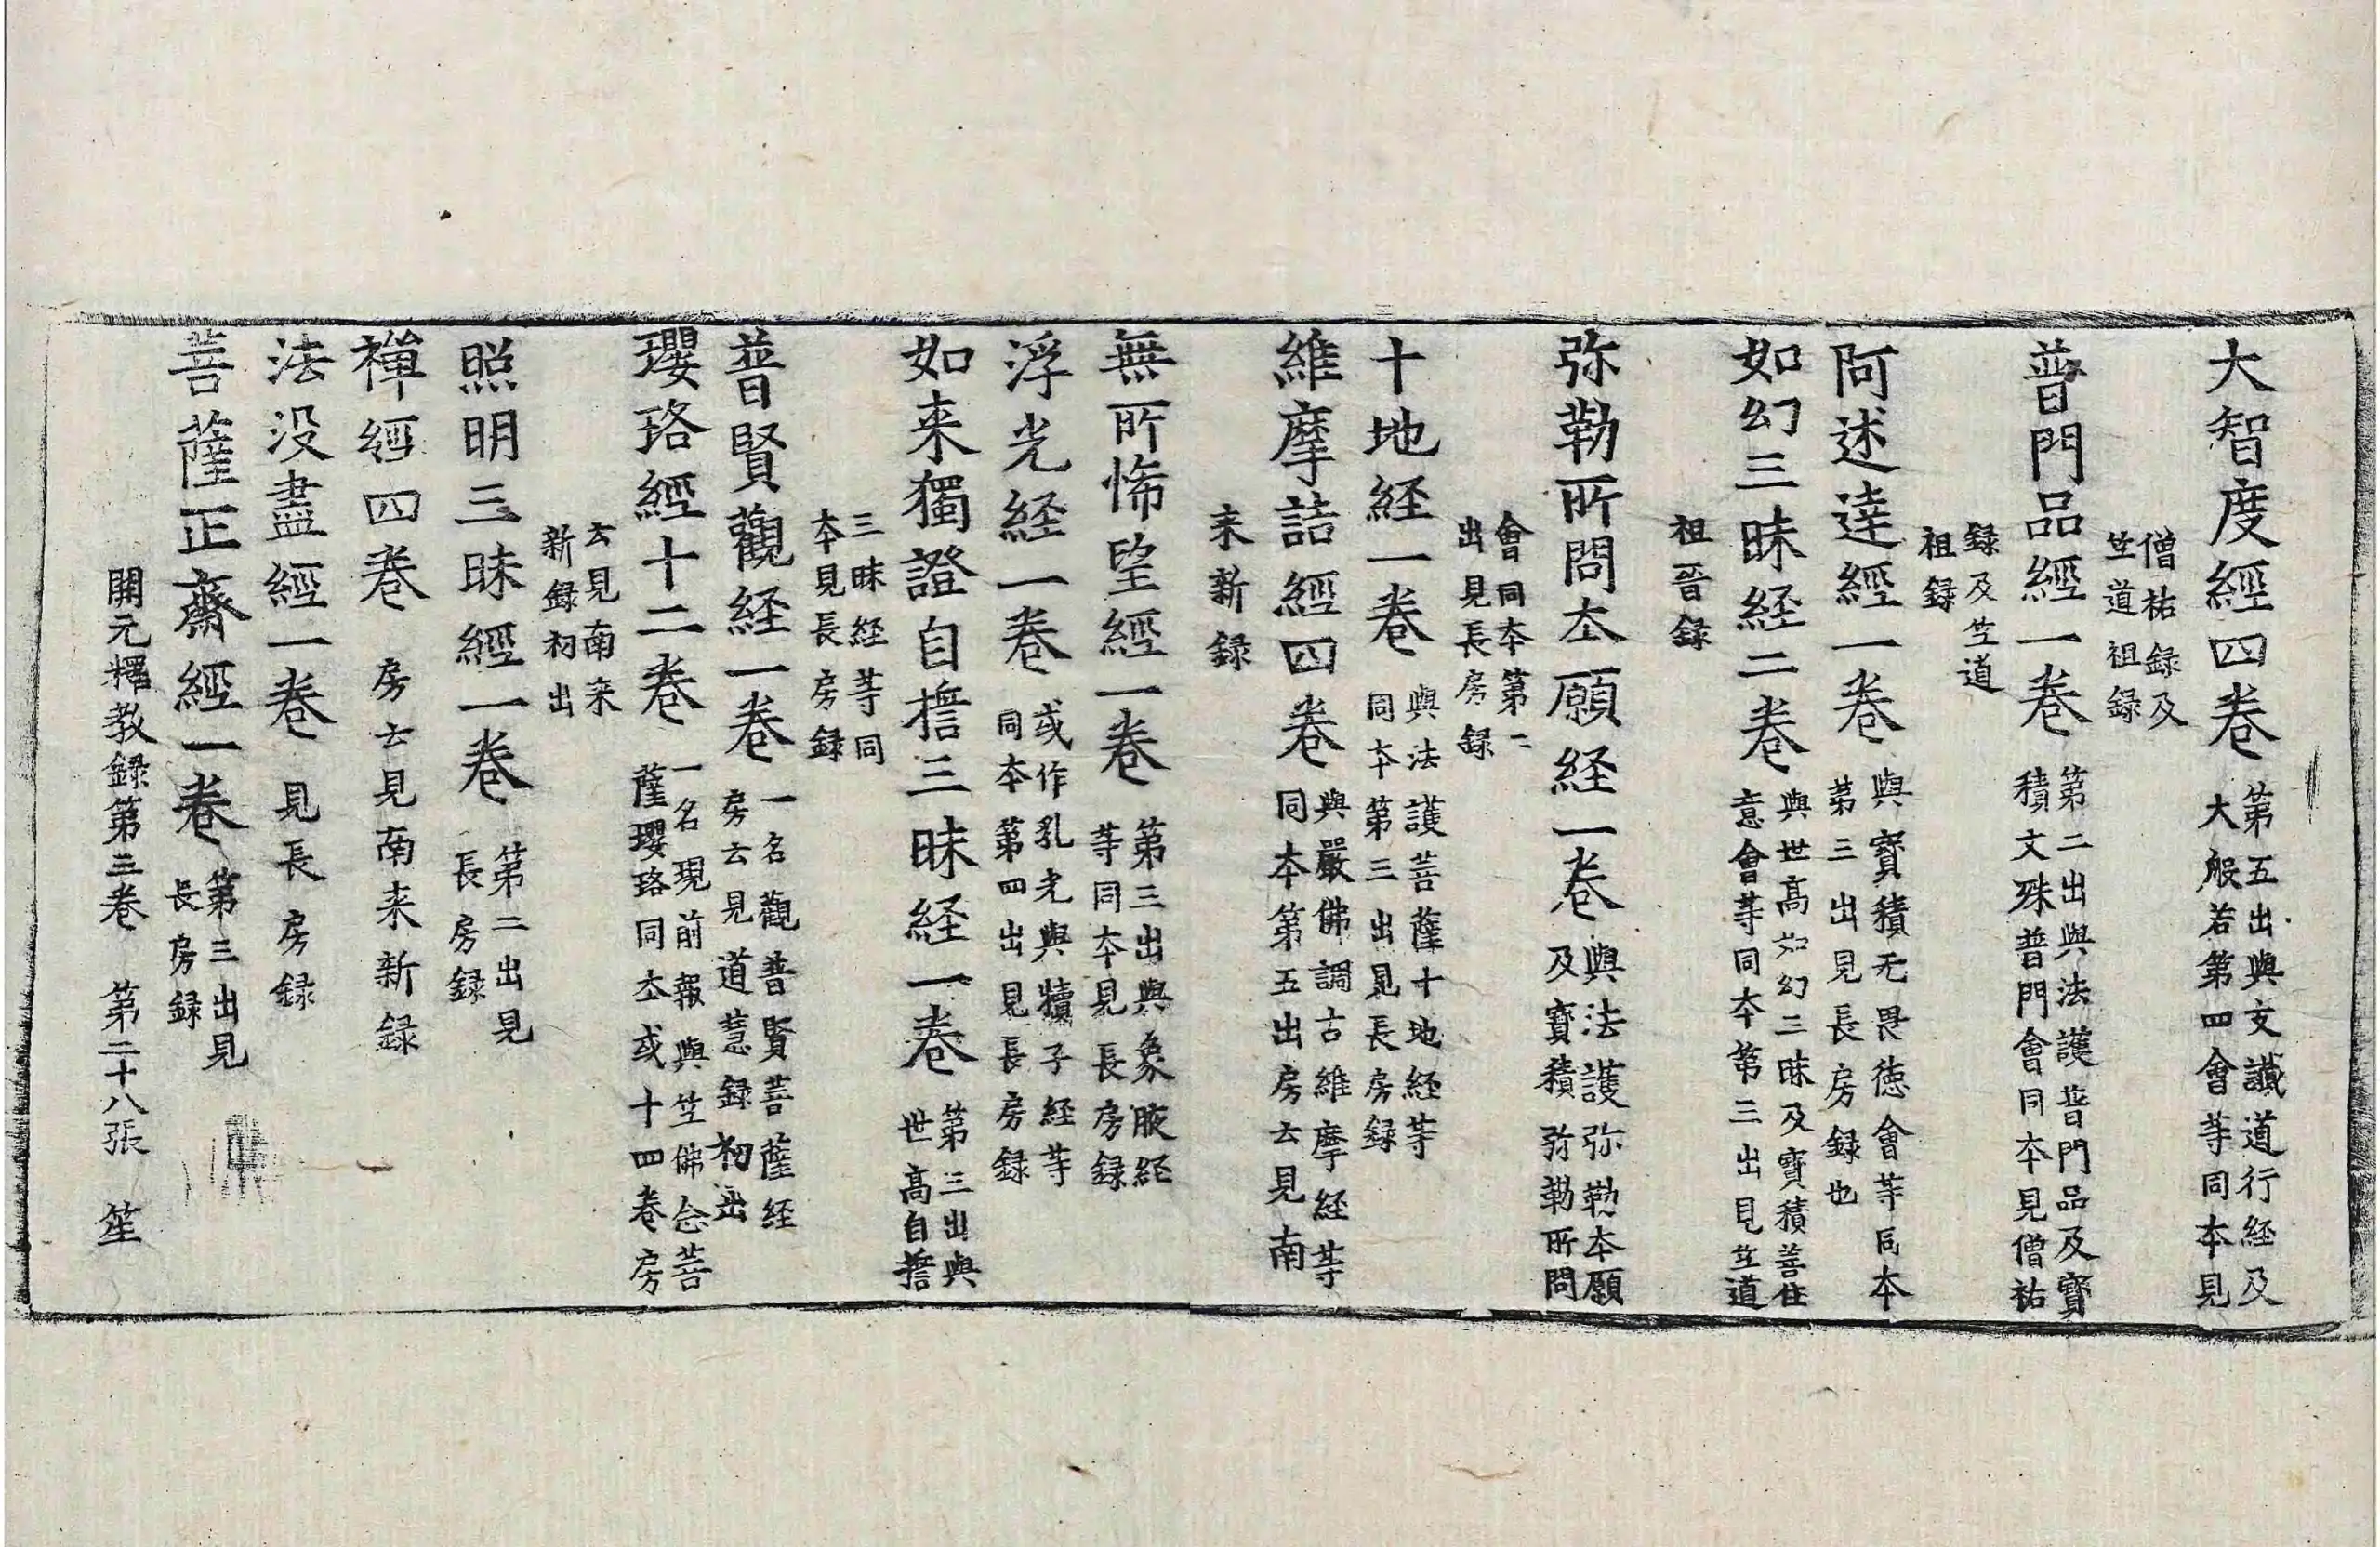 大智度經四卷 第五出與支讖道行経及大般若第四會等同本見
僧祐録及竺道祖録
普門品經一卷 第二出與法護普門品及寳積文殊普門會同本見僧祐
録及竺道祖録
阿述達經一卷 與寳積无畏徳會等同本第三出見長房録也
如幻三昧経二卷 與世髙如幻三昧及寳積善住意會等同本第三出見竺道
祖晉録
弥勒所問本願経一卷 與法護弥勒本願及寳積弥勒所問
會同本第二出見長房録
十地経一卷 與法護菩薩十地経等同本第三出見長房録
維摩詰經四卷 與嚴佛調古維摩経等同本第五出房云見南
来新録
無所悕望經一卷 第三出與象腋経等同本見長房録
浮光経一卷 或作乳光與犢子経等同本第四出見長房録
如来獨證自擔三昧経一卷 第三出與世髙自擔
三昧経等同本見長房録
普賢觀経一卷 一名觀普賢菩薩経房云見道慧録初出
瓔珞經十二卷 一名現前報與竺佛念菩薩瓔珞同本或十四卷房
云見南来新録初出
照明三昧經一卷 第二出見長房録
禅經四卷 房云見南来新録
法没盡經一卷 見長房録
菩薩正齋經一卷 第三出見長房録
開元釋教録第三卷 第二十八張 笙